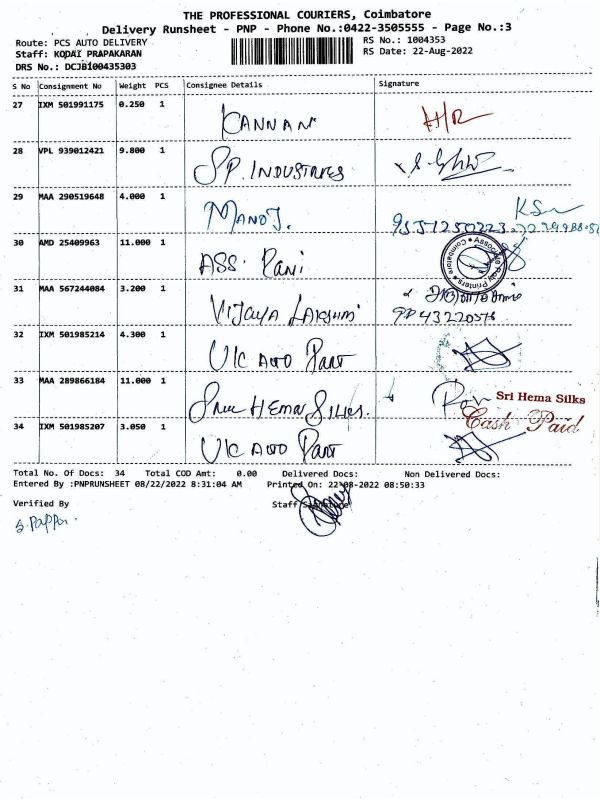 THE PROFESSIONAL COURIERS, Coimbatore
Delivery Runsheet - PNP - Phone No.:0422-3505555 - Page No.:3
Route: PCS AUTO DELIVERY
RS No.: 1004353
Staff: KOPAI PRAPAKARAN
RS Date: 22-Aug-2022
DRS No.: DCJB100435303
S No Consignment No Weight PCS Consignee Details Signature
27 IXM 501991175 0.250 1 KANNAN H/R
28 VPL 939012421 9.800 1 S.P. INDUSTRIES
29 MAA 290519648 4.000 1 MANOJ.
30 AMD 25409963 11.000 1 ASS. Rani
31 MAA 567244084 3.200 1 VIJAYA LAKSUMI
32 IXM 501985214 4.300 1 UIC AUTO PART
33 MAA 289866184 11.000 1 SREE HEMA SILKS.
Sri Hema Silks
Cash Paid
34 IXM 501985207 3.050 1 UIC AUTO PART
Total No. Of Docs: 34 Total COD Amt: 0.00 Delivered Docs: Non Delivered Docs:
Entered By :PNPRUNSHEET 08/22/2022 8:31:04 AM Printed On: 22-08-2022 08:50:33
Verified By Staff Signature